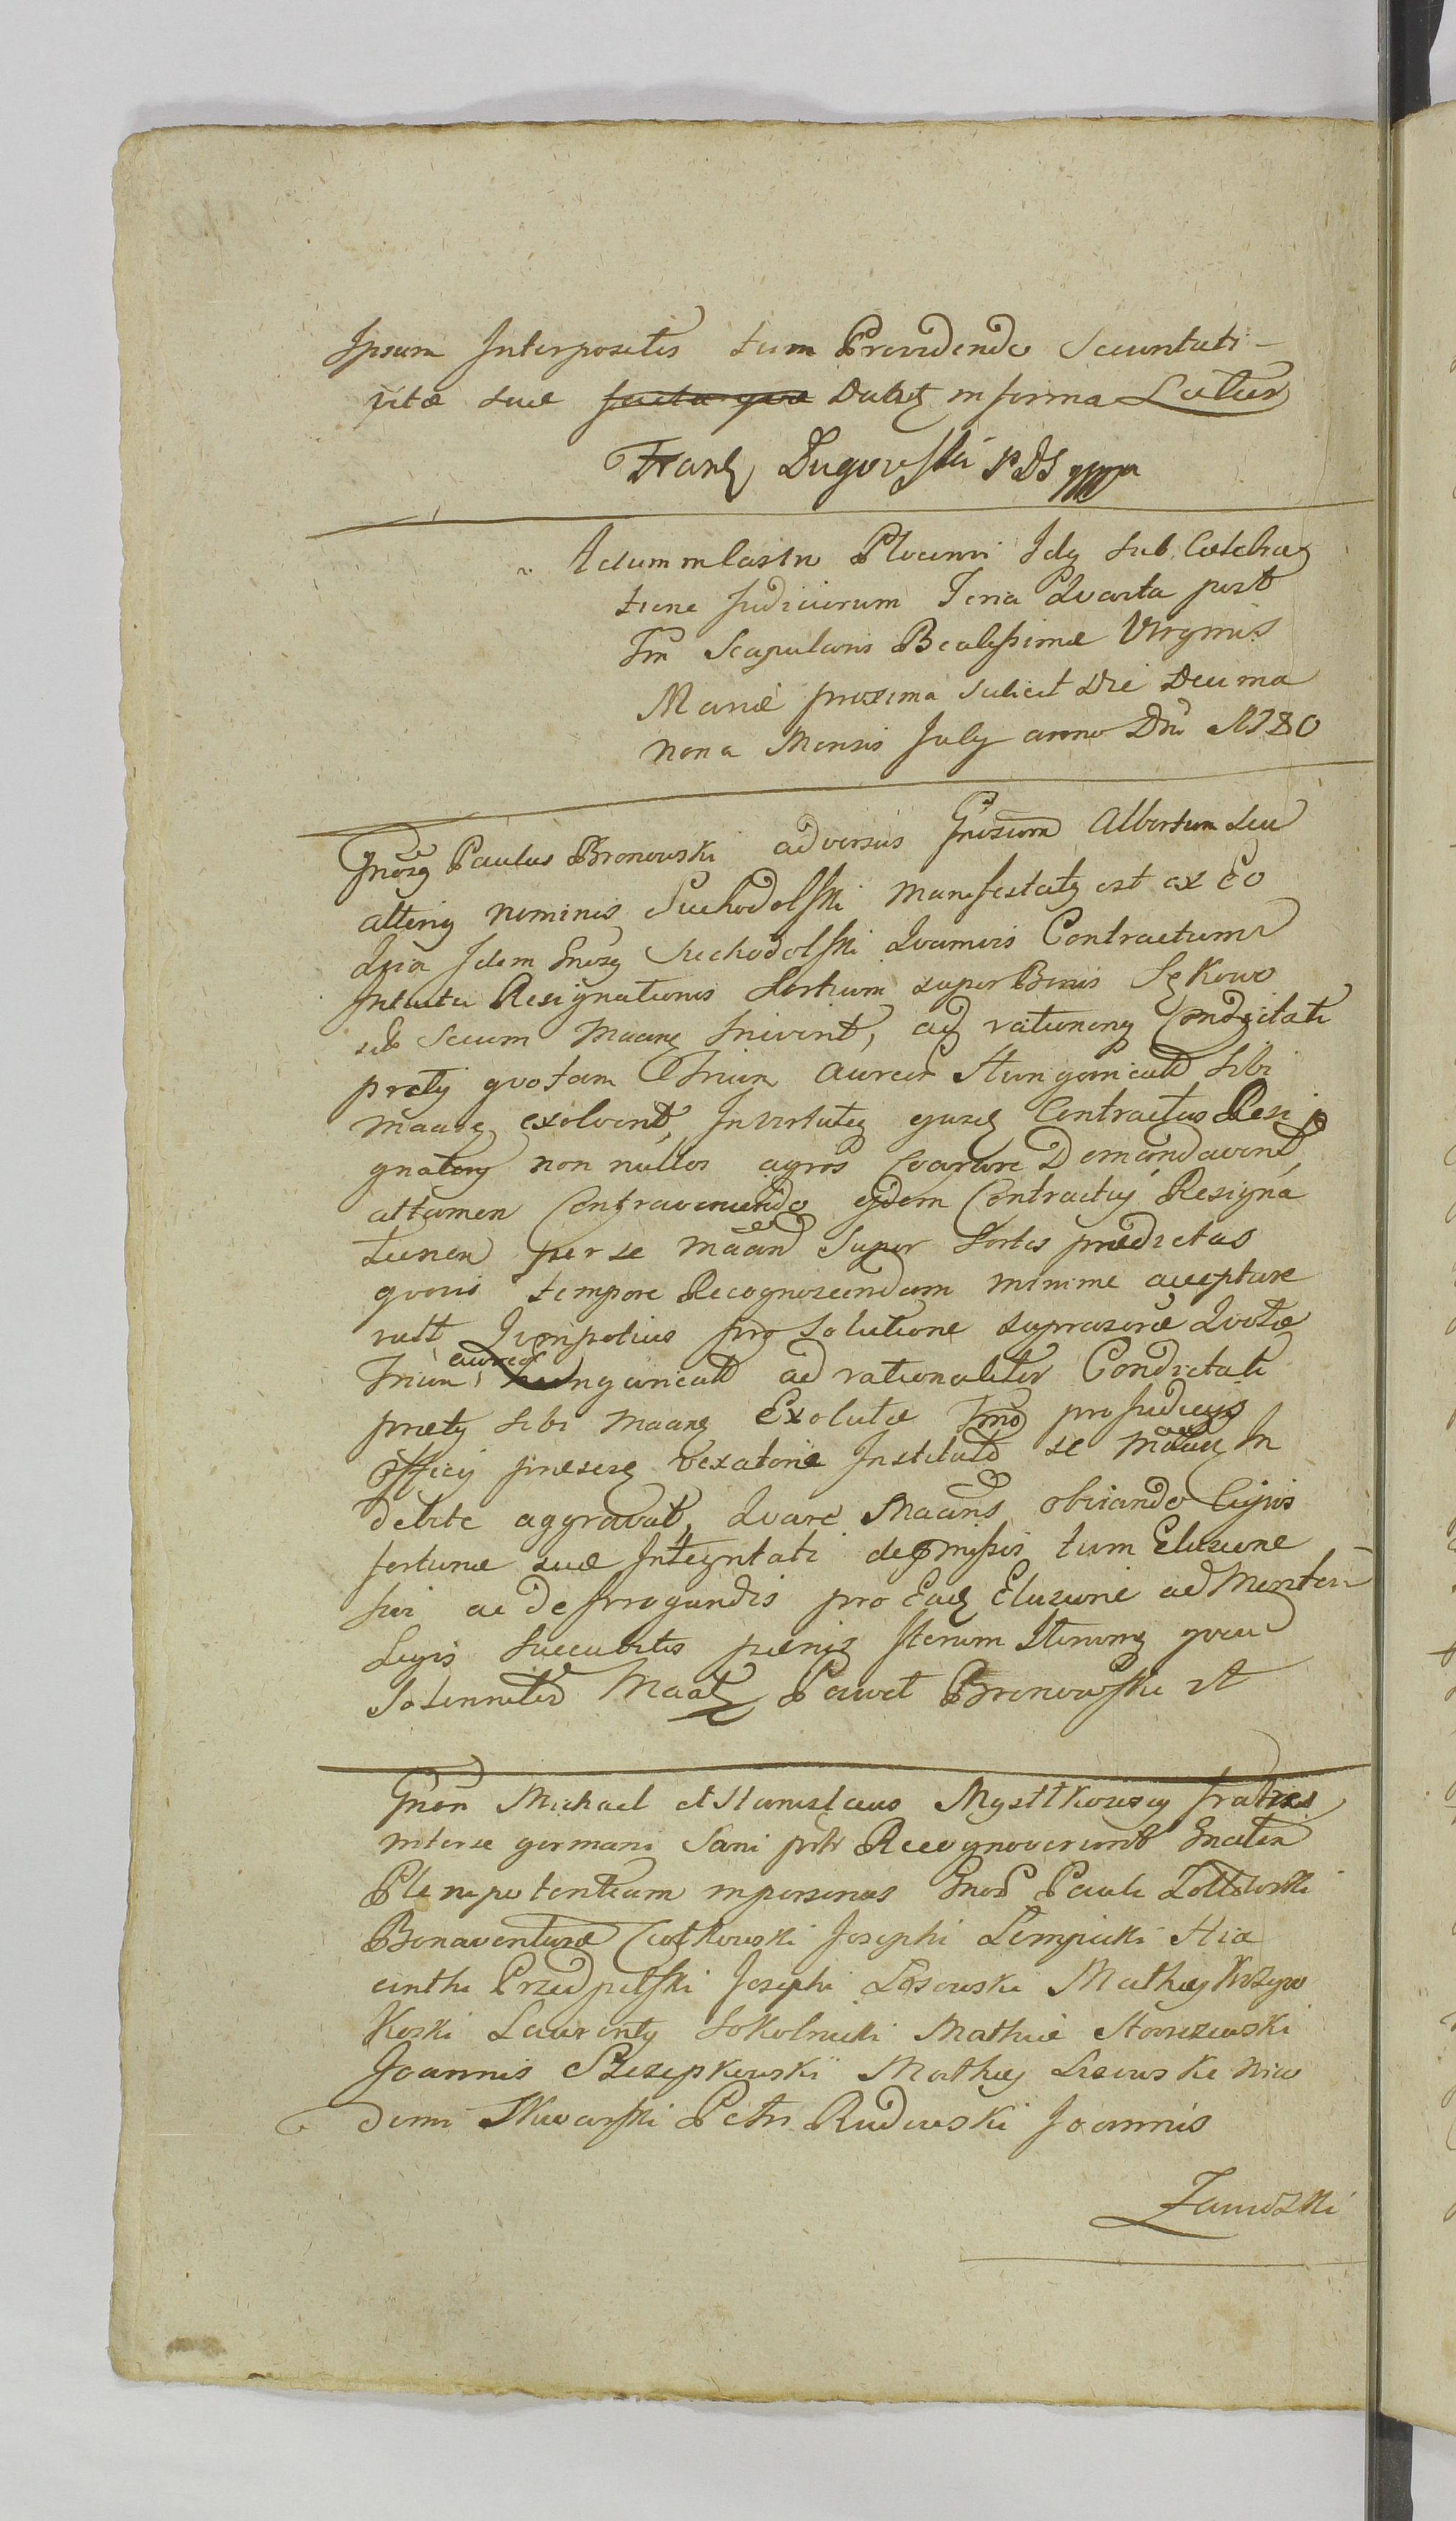 Ipsum Interpositis tum Providendo Securitati-
vitæ suæ factaque Datq in forma Latior
Franq Dugowski PDS mppa
Actum in Castro Plocensi Idq sub Celebraq
tione Judiciorum Feria Quarta post
Ftm Scapularis Beatissimæ Virginis
Mariæ proxima scilicet Die Decima
nona Mensis July anno Dni 1780
Gnosq Paulus Bronowski adversus Gnosum Albertum seu
alteriq nominis Suchodolski Manifestatq est ex Eo
Quia Idem Gnosq Suchodolski Quamvis Contractum
Intuitu Resignationis Sortium super Bonis Sękowo
sub secum Maanq Inivint, aq rationenq Condictati
prety quotam Trium aureor Hungaricatd sibi
Maanq exolvint, In virtuteq ejusq Contractus Resi
gnatory non nullos agros Coarare Demandavint,
attamen Contraveniendo ejdem Contractuj Resigna
tionem per se Maand super Sortes prædictas
quovis tempore Recognoscendam minime acceptare
vult Quinpotius pro solutione suprascræ Quotæ
Trium aureor hungaricatd ad rationaliter Condictati
prety sibi Maanq Exolutæ Imo pro Judicijs
Officij præseq vexatorie Institutd se Maanq In
debite aggravat, Quare Maans obviando Cujvis
fortunæ suæ Integritati demissis tum Elusione
sui ac de Irrogandis pro Eaq Elusione ad Mentem
Legis Succubitis pænis Iterum Iterumq quam
Solenniter Maatq Paweł Bronowski st
Gnon Michael et Stanislaus Mysttkowscy fratres
interse germani Sani pntr Recognoverunt Inaltera
Plenipotentiam in personas Gnod Pauli Zołtowski
Bonaventuræ Ciołkowski Josephi Lempicki Hia
cinthi Przedpełski Josephi Losowski Mathæj Krzyw
koski Laurenty Sokolnicki Mathiæ Staniszewski
Joannis Szczepkowski Mathæj Lisowski Nico
demi Skwarski Petri Rudowski Joannis
Zamoski